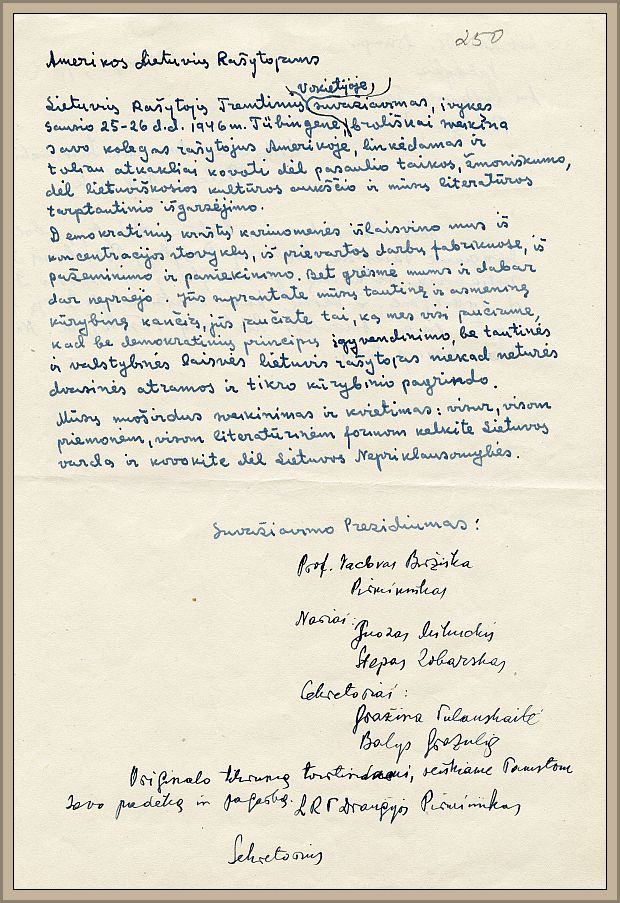 250
Amerikos Lietuvių Rašytojams
Vokietijoje
Lietuvių Rašytojų Tremtinių suvažiavimas, įvykęs
Sausio 25-26 d.d. 1946 m. Tübingene, broliškai sveikina
savo kolegas rašytojus Amerikoje, linkėdamas ir
toliau atkakliai kovoti dėl pasaulio taikos, žmoniškumo,
dėl lietuviškosios kultūros aukščio ir mūsų literatūros
tarptautinio išgarsėjimo.
Demokratinių kraštų kariuomenės išlaisvino mus iš
koncentracijos stovyklų, iš prievartos darbų fabrikuose, iš
pažeminimo ir paniekinimo. Bet grėsmė mums ir dabar
dar nepraėjo. Jūs suprantate mūsų tautinę ir asmeninę
kūrybinę kančią, jūs jaučiate tai, ką mes visi jaučiame,
kad be demokratinių principų įgyvendinimo, be tautinės
ir valstybinės laisvės lietuvis rašytojas niekad neturės
dvasinės atramos ir tikro kūrybinio pagrindo.
Mūsų nuoširdus sveikinimas ir kvietimas: visur, visom
priemonėm, visom literatūrinėm formom kelkite Lietuvos
vardą ir kovokite dėl Lietuvos Nepriklausomybės.
Suvažiavimo Prezidiumas:
Prof. Vaclovas Biržiška
Pirmininkas
Nariai:
Juozas Mikuckis
Stepas Zobarskas
Sekretoriai:
Gražina Tulauskaitė
Balys Gražulis
Originalo tikrumą tvirtindami, reiškiame Tamstom
savo padėką ir pagarbą. LRT Draugijos Pirmininkas
Sekretorius